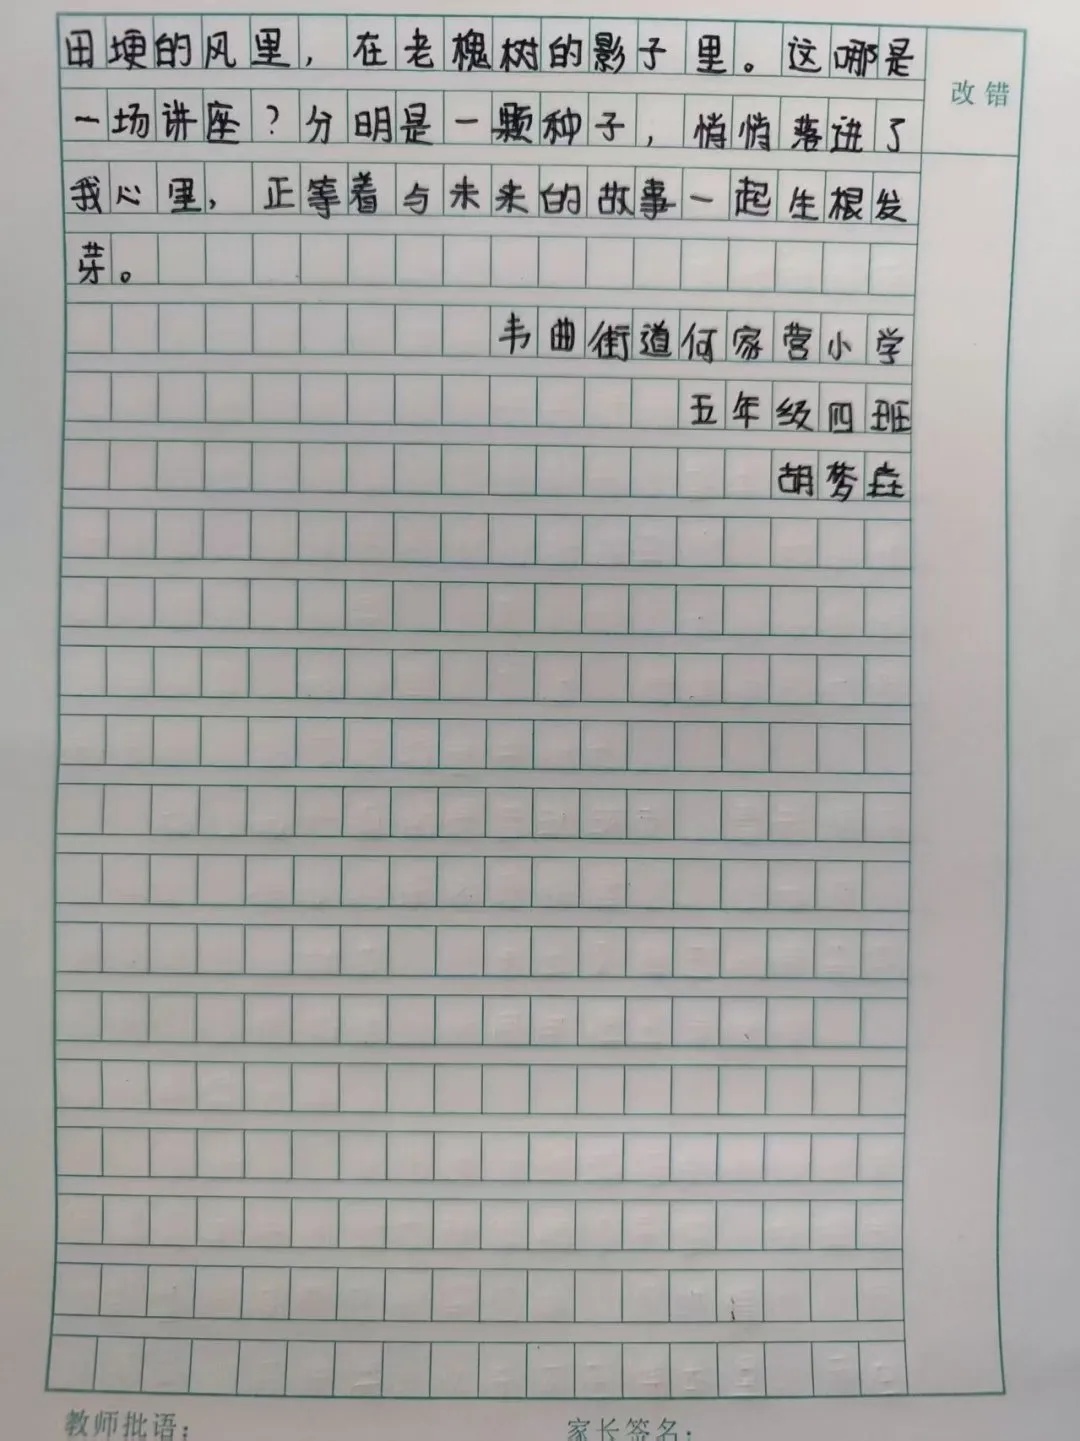 田埂的风里，在老槐树的影子里。这哪是
改错
一场讲座？分明是一颗种子，悄悄落进了
我心里，正等着与未来的故事一起生根发
芽。
韦曲街道何家营小学
五年级四班
胡梦垚
教师批语：
家长签名：